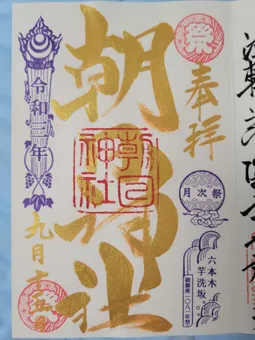 奉拝
祭
月次祭
六本木
芋洗坂
朝日神社
朝日
神社
令和二年
九月十
祭